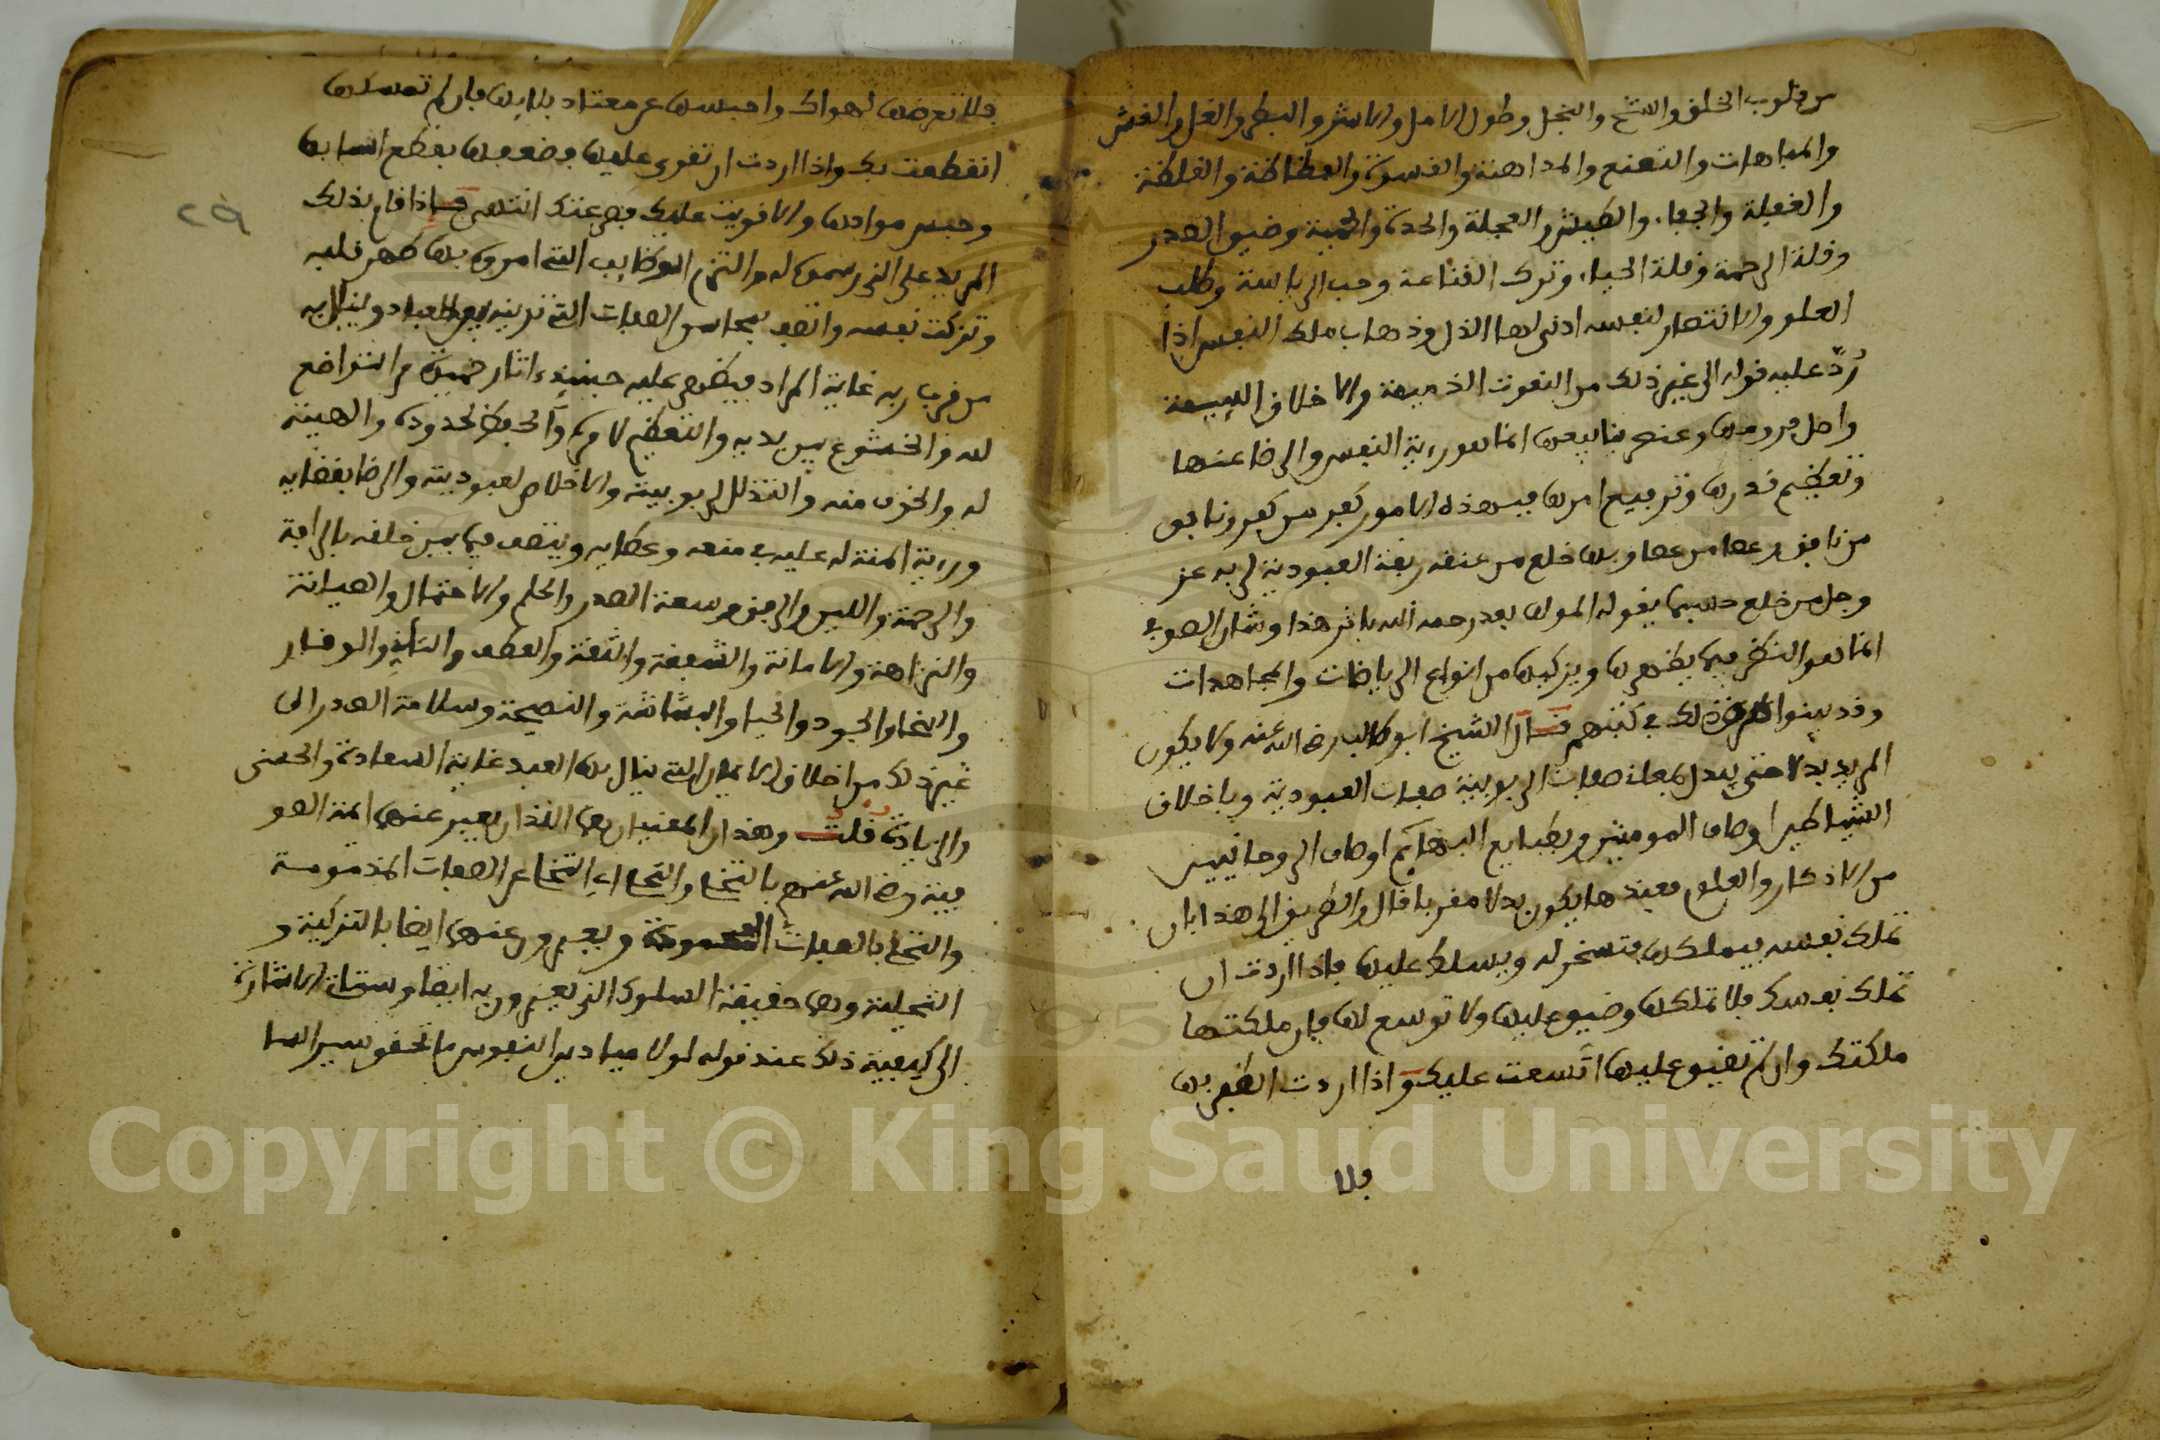 من قلوب الخلق والشح والبخل وطول الامل والاشر والبطر والغل والغش
والمباهات والتصنع والمداهنة والقسوة والفظاظة والغلظة
والغفلة والجفاء والطيش والعجلة والحدة والحمية وضيق الصدر
وقلة الرحمة وقلة الحياء وترك القناعة وحب الرياسة وطلب
العلو والانتصار لنفسه اذا نالها الذل وذهاب ملك النفس اذا
رُدّ عليه قوله الى غير ذلك من النعوت الذميمة والاخلاق اللييمة
واصل فروعها وعنصر ينابيعها انما هو رؤية النفس والرضا عنها
وتعظيم قدرها وترفيع امرها فبهذه الامور كفر من كفر ونافق
من نافق وعصا من عصا وبها خلع من عنقه ربقة العبودية لربه عز
وجل من خلع حسبما يقوله المولف بعد رحمه الله باثر هذا وشان الصوفي
انما هو النظر فيما يطهرها ويزكيها من انواع الرياضات والمجاهدات
وقد بينوا ذلك في كتبهم قال الشيخ ابو طالب رضي الله عنه ولا يكون
المريد بدلا حتى يبدل بمعاني صفات الربوبية صفات العبودية وباخلاق
الشياطين اوصاف المومنين وبطبايع البهايم اوصاف الروحانيين
من الاذكار والعلوم فعندها يكون بدلا مقربا قال والطريق الى هذا بان
تملك نفسه فيملكها فتسخر له ويسلط عليها فاذا اردت ان
تملك نفسك فلا تملكها وضيق عليها ولا توسع لها فان ملكتها
ملكتك وان لم تضيق عليها اتسعت عليك واذا اردت الظفر بها
فلا
فلا تعرضها لهواك واحبسها عن معتاد بلايها فان لم تمسكها
انطلقت بك واذا اردت ان تقوى عليها فضعفها بقطع اسبابها
وحبس موادها والا قويت عليك فصرعتك انتهى فاذا قام بذلك
المريد على الذي رسموه له والتزم الوظايف التي امروه بها طهر قلبه
وتزكت نفسه واتصف بمحاسن الصفات التي تزينه بين العباد وينال به
من قرب ربه غاية المراد فيظهر عليه حينيذ اثار حميدة من التواضع
لله والخشوع بين يديه والتعظيم لامره والحفظ لحدوده والهيبة
له والخوف منه والتذلل لربوبيته والاخلاص لعبوديته والرضا بقضايه
ورؤية المنة له عليه في منعه وعطايه ويتصف فيما بين خلقه بالرافة
والرحمة واللين والرفق وسعة الصدر والحلم والاحتمال والصيانة
والنزاهة والامانة والشفقة والثقة والعطف والتاني والوقار
والسخا والجود والحيا والبشاشة والنصيحة وسلامة الصدر الى
غير ذلك من اخلاق الايمان التي ينال بها العبد غاية السعادة والحسنى
والزيادة قلت وهذان المعنيان هما اللذان يعبر عنهما ايمة الصو
فية رضي الله عنهم بالتخلي والتحلي اي التخلي عن الصفات المذمومة
والتحلي بالصفات المحمودة ويعبرون عنهما ايضا بالتزكية و
التحلية وهي حقيقة السلوك الذي يعبرون به ايضا وستاتي الاشارة
الى كيفية ذلك عند قوله لولا ميادين النفوس ما تحقق سير السا
٢٩
Copyright © King Saud University